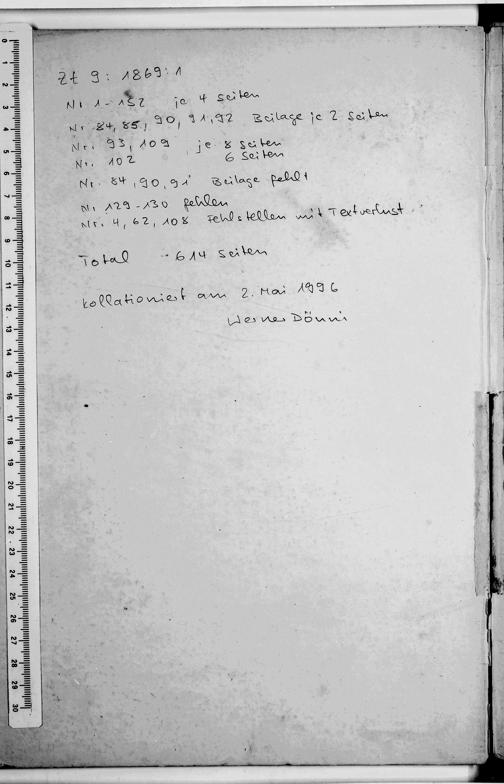 Zt 9 : 1869 : 1
Nr 1 - 152 je 4 Seiten
Nr. 84, 85, 90, 91, 92 Beilage je 2 Seiten
Nr. 93, 109 je 8 Seiten
Nr. 102 6 Seiten
Nr. 84, 90, 91 Beilage fehlt
Nr 129 - 130 fehlen
Nr. 4, 62, 108 Fehlstellen mit Textverlust
Total 614 Seiten
Kollationiert am 2. Mai 1996
Werner Dönni
0
1
2
3
4
5
6
7
8
9
10
11
12
13
14
15
16
17
18
19
20
21
22
23
24
25
26
27
28
29
30